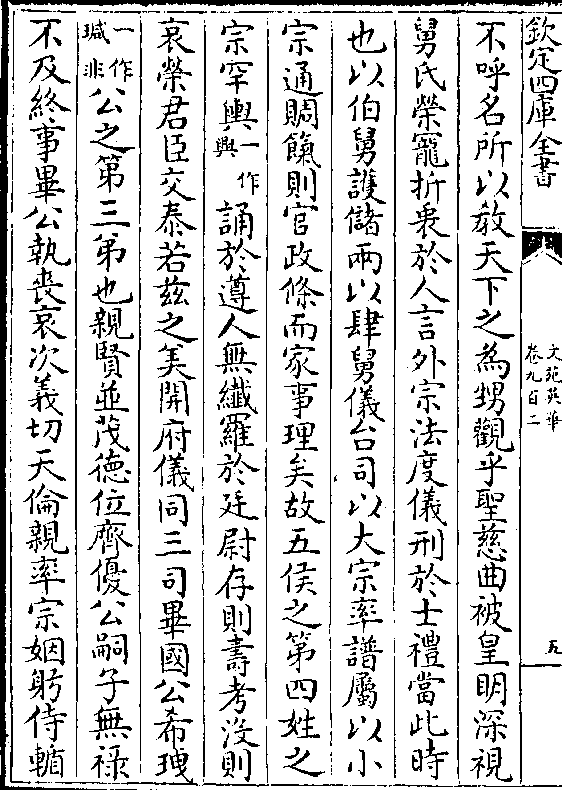 欽定四庫全書
文苑英華
卷九百二
五
不呼名所以敎天下之為甥觀乎聖慈曲被皇明深視
舅氏榮寵折衷於人言外宗法度儀刑於士禮當此時
也以伯舅護儲兩以肆舅儀台司以大宗率譜屬以小
宗通賙餼則官政條而家事理矣故五侯之第四姓之
宗罕輿一作輿誦於遵人無纖羅於廷尉存則壽考沒則
哀榮君臣交泰若兹之美開府儀同三司畢國公希琁
一作瑊非公之第三弟也親賢並茂德位齊優公嗣子無禄
不及終事畢公執喪哀次義切天倫親率宗姻躬侍輴